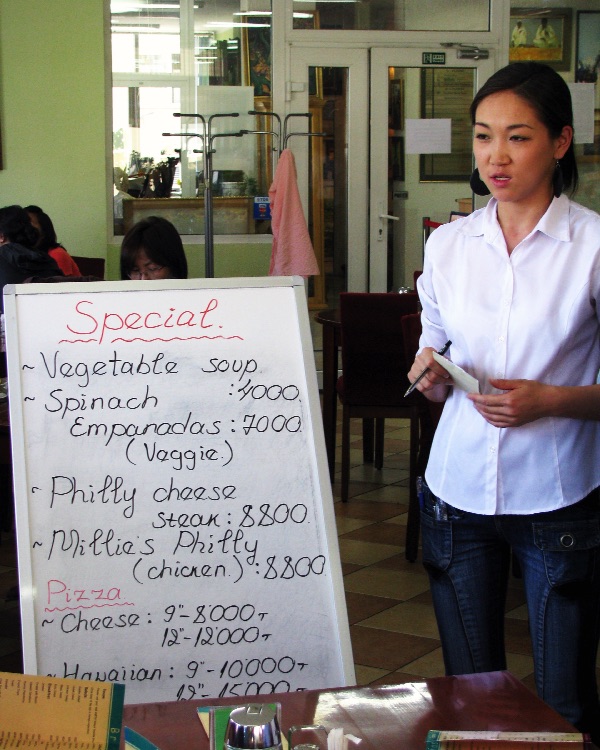 Special.
~ Vegetable soup.
~ Spinach :4000.
Empanadas : 7000.
(Vaggie.)
~ Philly cheese
steak : 8800.
~ Millie's Philly
(chicken.) : 8800.
Pizza
~ Cheese : 9"-8'000₮
12"-12'000₮
~ Hawaiian : 9"-10000₮
12"-15000₮